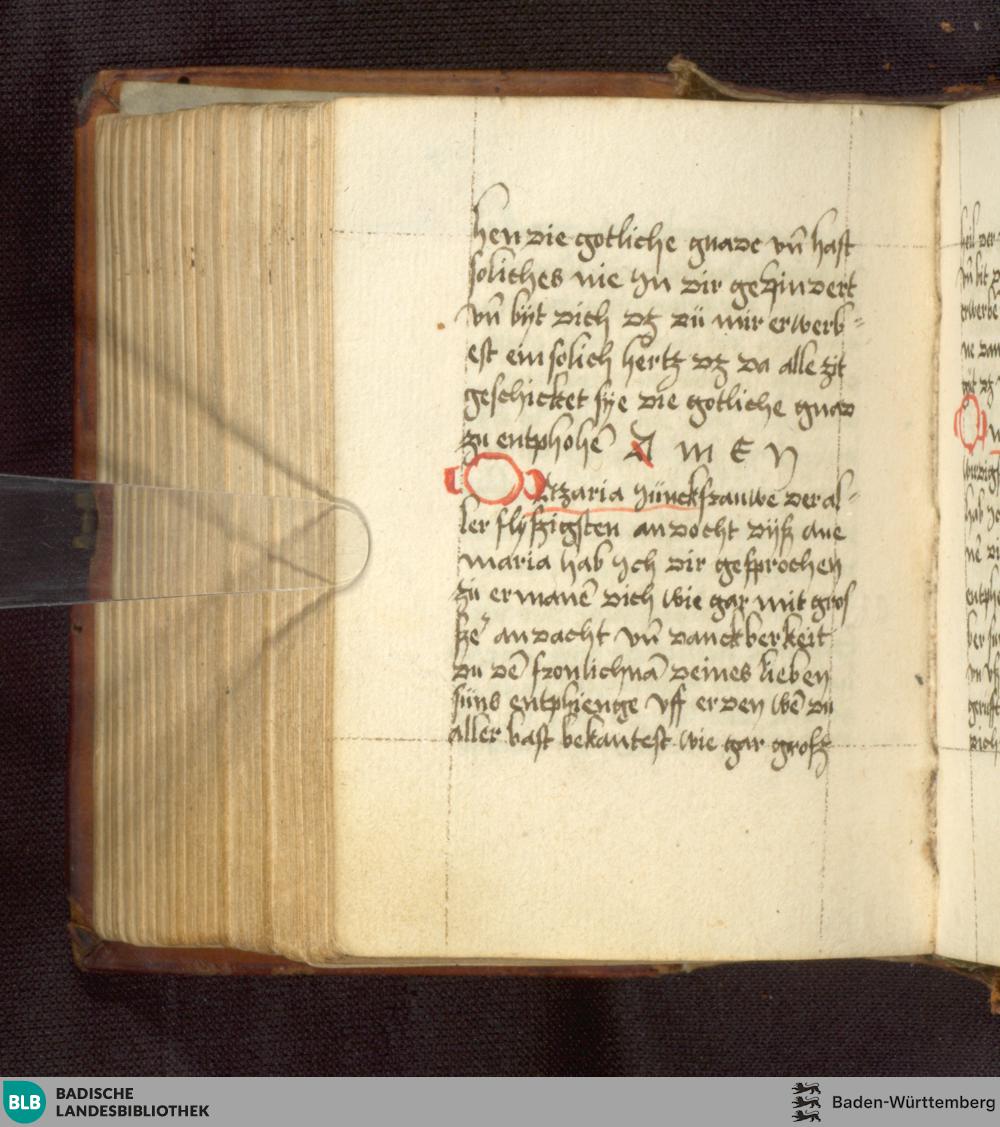 hen die gotliche gnade vn̄ hast
soliches nie Jn dir gehindert
vn̄ bijt dich dz dü mir erwerb=
est ein solich hertz dz da alle zit
geschicket sye die gotliche gnad
zu entphohē A m E n
O Maria Jünckfrauwe der al-
ler flyßigsten andocht dyß aue
maria hab Jch dir gesprochen
zü ermanē dich wie gar mit gros
ße andacht vn̄ danckberkeit
du dē fronlichnā deines lieben
süns entphienge vff erden wē du
aller bast bekantest wie gar groß
BLB BADISCHE
LANDESBIBLIOTHEK
Baden-Württemberg